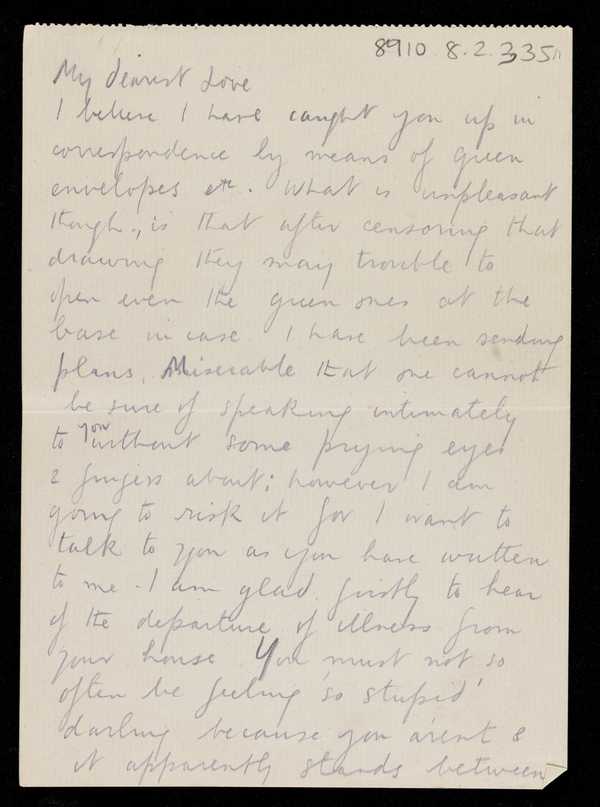 8910. 8.2.335
My dearest Love
I believe I have caught you up in
correspondence by means of green
envelopes etc. What is unpleasant
though, is that after censoring that
drawing they may trouble to
open even the green ones at the
base in case I have been sending
plans. Miserable that one cannot
be sure of speaking intimately
to you without some prying eyes
& fingers about; however I am
going to risk it for I want to
talk to you as you have written
to me - I am glad firstly to hear
of the departure of illness from
your house. You must not so
often be feeling 'so stupid'
darling because you aren't &
it apparently stands between